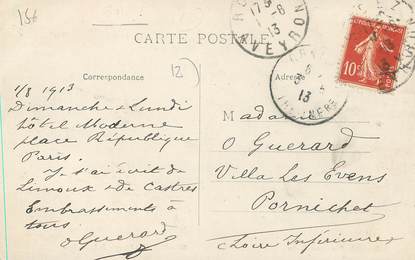 156
CARTE POSTALE
12
Correspondance
Adresse
1/8 1913
Dimanche & Lundi
hôtel Moderne
place République
Paris.
Je t'ai écrit de
Limoux & de Castres
Embrassements à
tous
O Guerard
Madame
O Guerard
Villa Les Evens
Pornichet
(Loire Inférieure)
AVEYRON
13
10